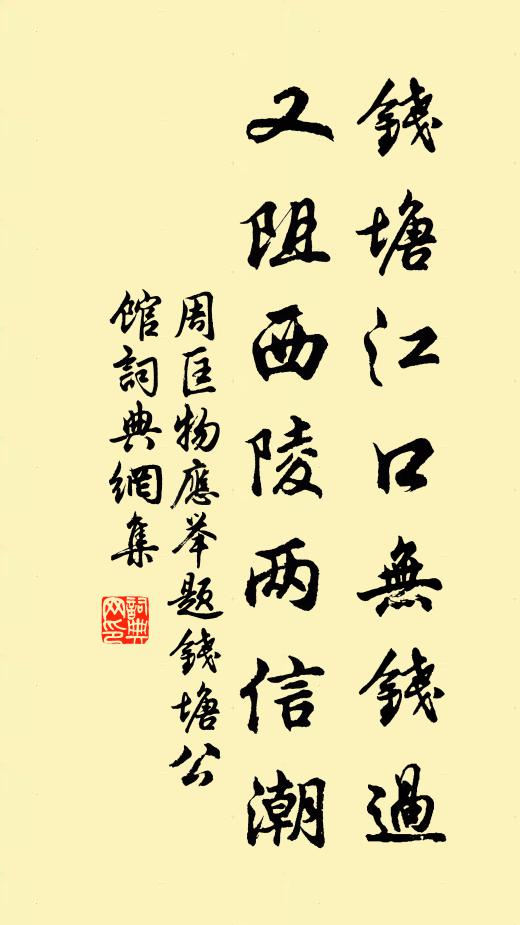 錢塘江口無錢過
又阻西陵两信潮
周匡物應举題錢塘公
館詞典網集
詞典
网印